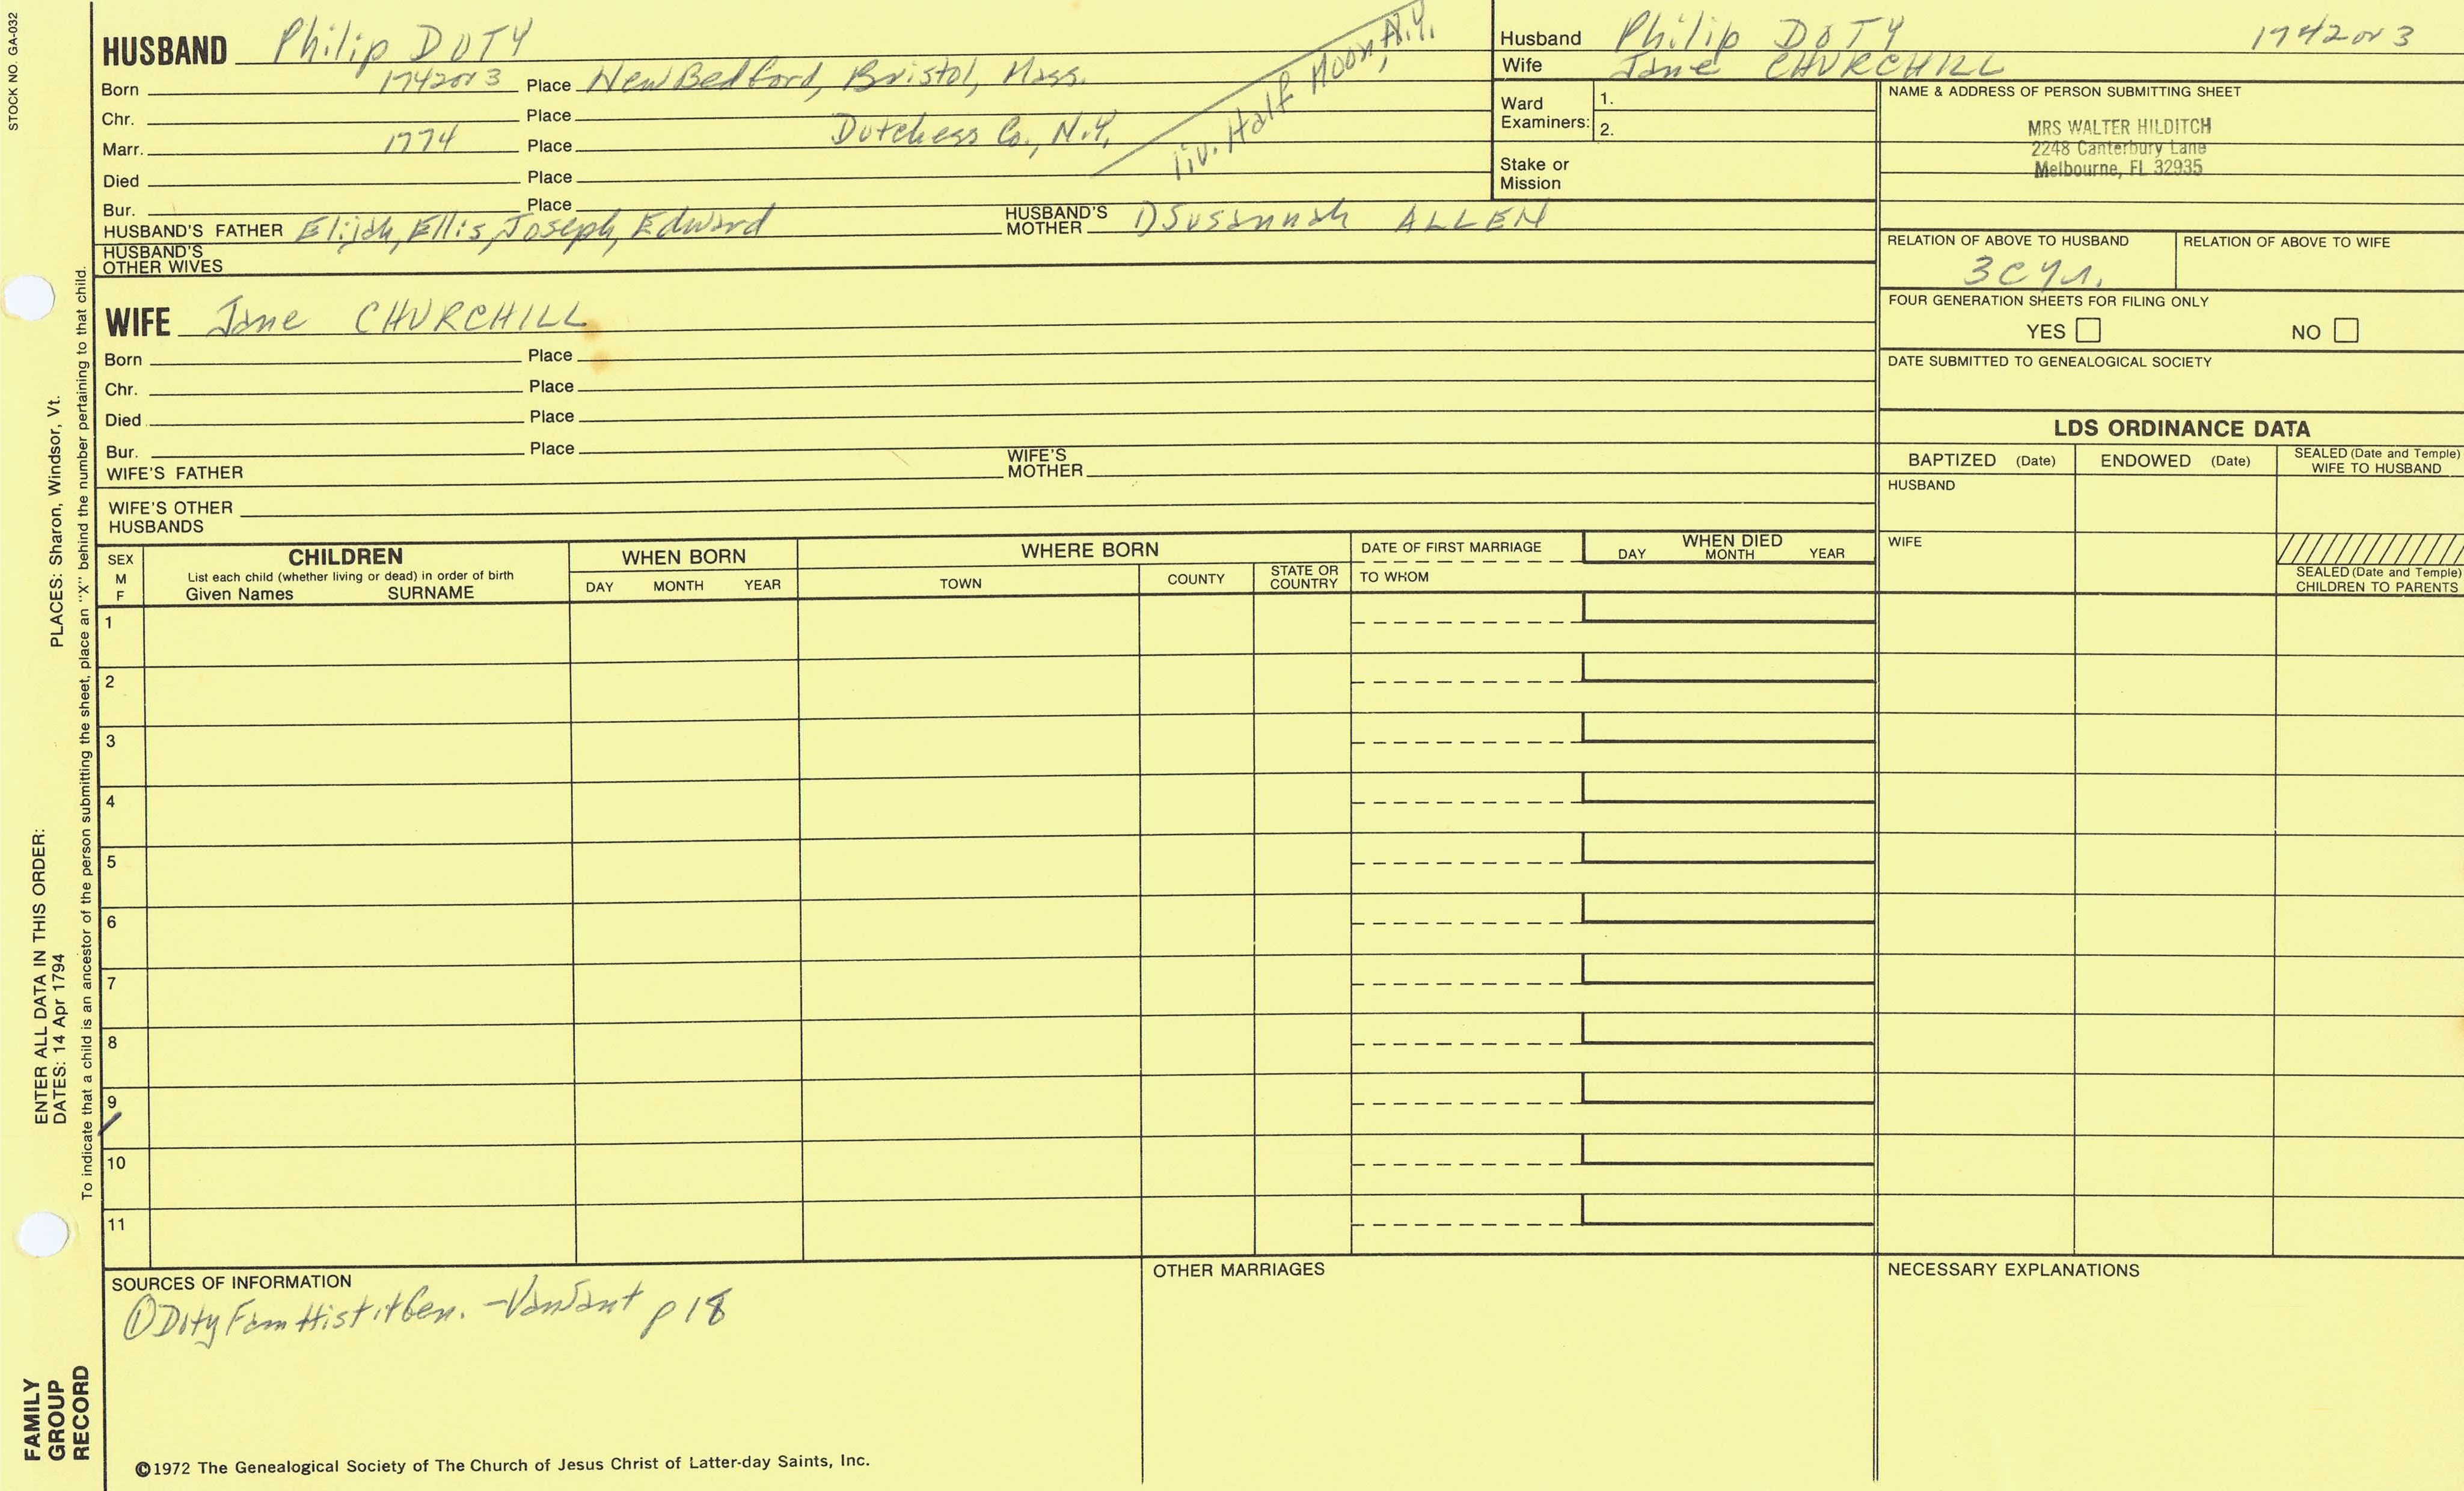 STOCK NO. GA-032
HUSBAND Philip DOTY
Born 1742 or 3 Place New Bedford, Bristol, Mass.
Chr. Place
Marr. 1774 Place Dutchess Co., N.Y.
liv. Half Moon, N.Y.
Died Place
Bur. Place
HUSBAND'S FATHER Elijah, Ellis, Joseph, Edward HUSBAND'S MOTHER 1) Susannah ALLEN
HUSBAND'S OTHER WIVES
WIFE Jane CHURCHILL
Born Place
Chr. Place
Died Place
Bur. Place
WIFE'S FATHER WIFE'S MOTHER
WIFE'S OTHER HUSBANDS
Husband Philip DOTY 1742 or 3
Wife Jane CHURCHILL
Ward Examiners: 1.
2.
Stake or Mission
NAME & ADDRESS OF PERSON SUBMITTING SHEET
MRS WALTER HILDITCH
2248 Canterbury Lane
Melbourne, FL 32935
RELATION OF ABOVE TO HUSBAND RELATION OF ABOVE TO WIFE
3C
FOUR GENERATION SHEETS FOR FILING ONLY
YES NO
DATE SUBMITTED TO GENEALOGICAL SOCIETY
LDS ORDINANCE DATA
BAPTIZED (Date) ENDOWED (Date) SEALED (Date and Temple) WIFE TO HUSBAND
HUSBAND
WIFE
SEALED (Date and Temple) CHILDREN TO PARENTS
SEX M F
CHILDREN
List each child (whether living or dead) in order of birth
Given Names SURNAME
WHEN BORN
DAY MONTH YEAR
WHERE BORN
TOWN COUNTY STATE OR COUNTRY
DATE OF FIRST MARRIAGE
TO WHOM
WHEN DIED
DAY MONTH YEAR
1
2
3
4
5
6
7
8
9
10
11
SOURCES OF INFORMATION
① Doty Fam Hist Gen. - VanSant p 18
OTHER MARRIAGES
NECESSARY EXPLANATIONS
©1972 The Genealogical Society of The Church of Jesus Christ of Latter-day Saints, Inc.
FAMILY GROUP RECORD
ENTER ALL DATA IN THIS ORDER:
DATES: 14 Apr 1794
PLACES: Sharon, Windsor, Vt.
To indicate that a child is an ancestor of the person submitting the sheet, place an "X" behind the number pertaining to that child.